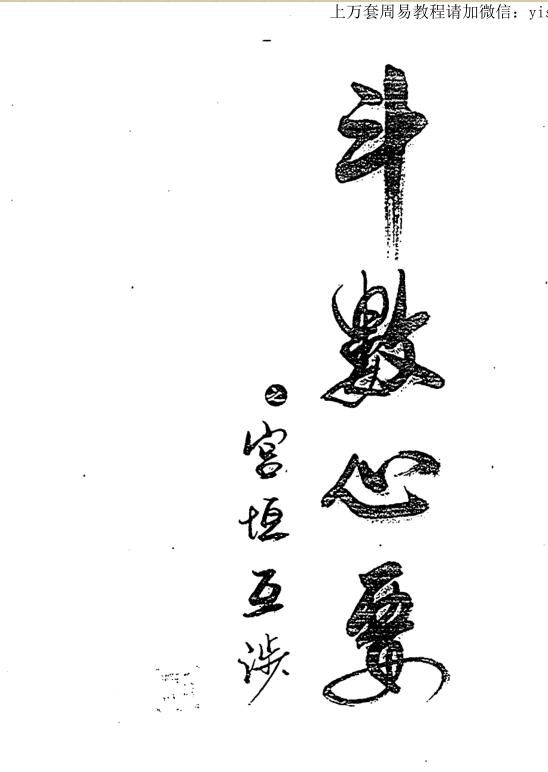 上万套周易教程请加微信：yis
斗數心要
之宮垣互涉